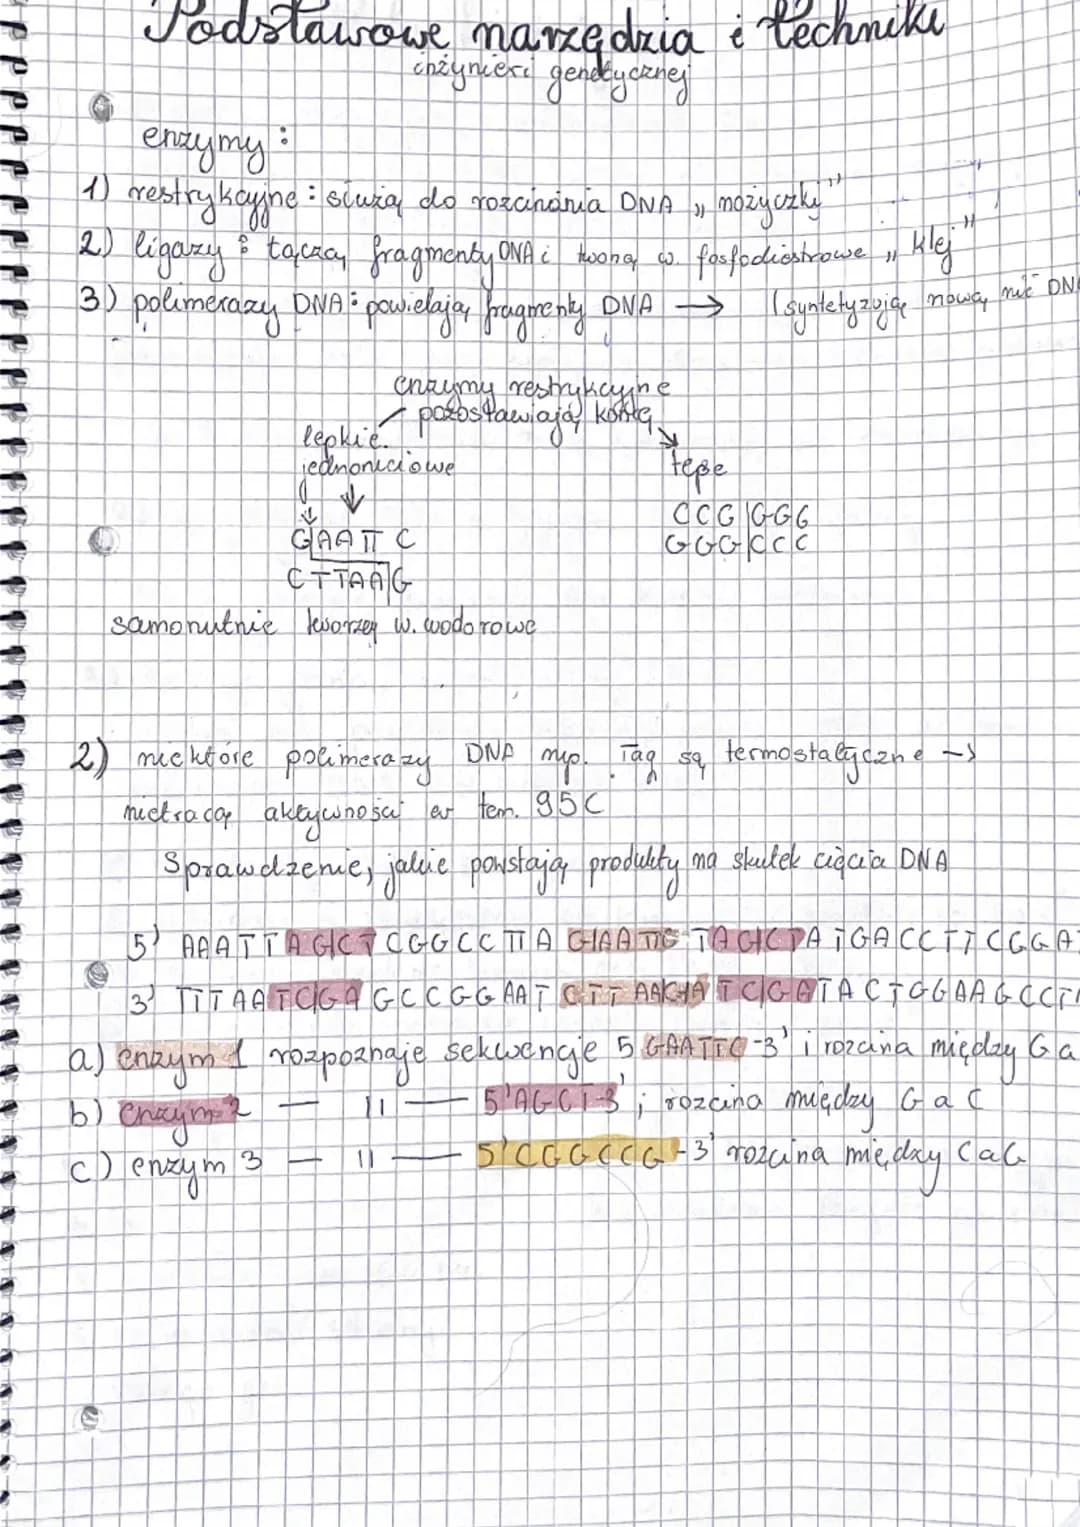 Podstawowe narzędzia i techniki
inżynieri genetycznej
enzymy :
1) restrykcyjne : służą do rozcinania DNA „nożyczki"
2) ligazy : łączą fragmenty DNA i tworzą w. fosfodiestrowe „klej"
3) polimerazy DNA : powielają fragmenty DNA → (syntetyzują nową nić DNA
enzymy restrykcyjne
pozostawiają końce
lepkie
jednoniciowe
tępe
CCG|GGG
GGG|CCC
G|AATT C
C TTAA|G
samorutnie tworzą w. wodorowe
2) niektóre polimerazy DNA np. Taq są termostatyczne ->
nietracą aktywności w tem. 95C
Sprawdzenie, jakie powstają produkty na skutek cięcia DNA
5' AAATTAG|CTCGGCCTTA G|AATTC TAG|CTATGACCTTCGGA
3' TTTAATC|GAGCCGGAAT CTTAAG|A TC|GATACTGGAAGCCT
a) enzym 1 rozpoznaje sekwencje 5 GAATTC-3' i rozcina między G a
b) enzym 2 — 11 — 5'AGCT-3' ; rozcina między G a C
c) enzym 3 — 11 — 5'CGGCCG-3' rozcina między C a G